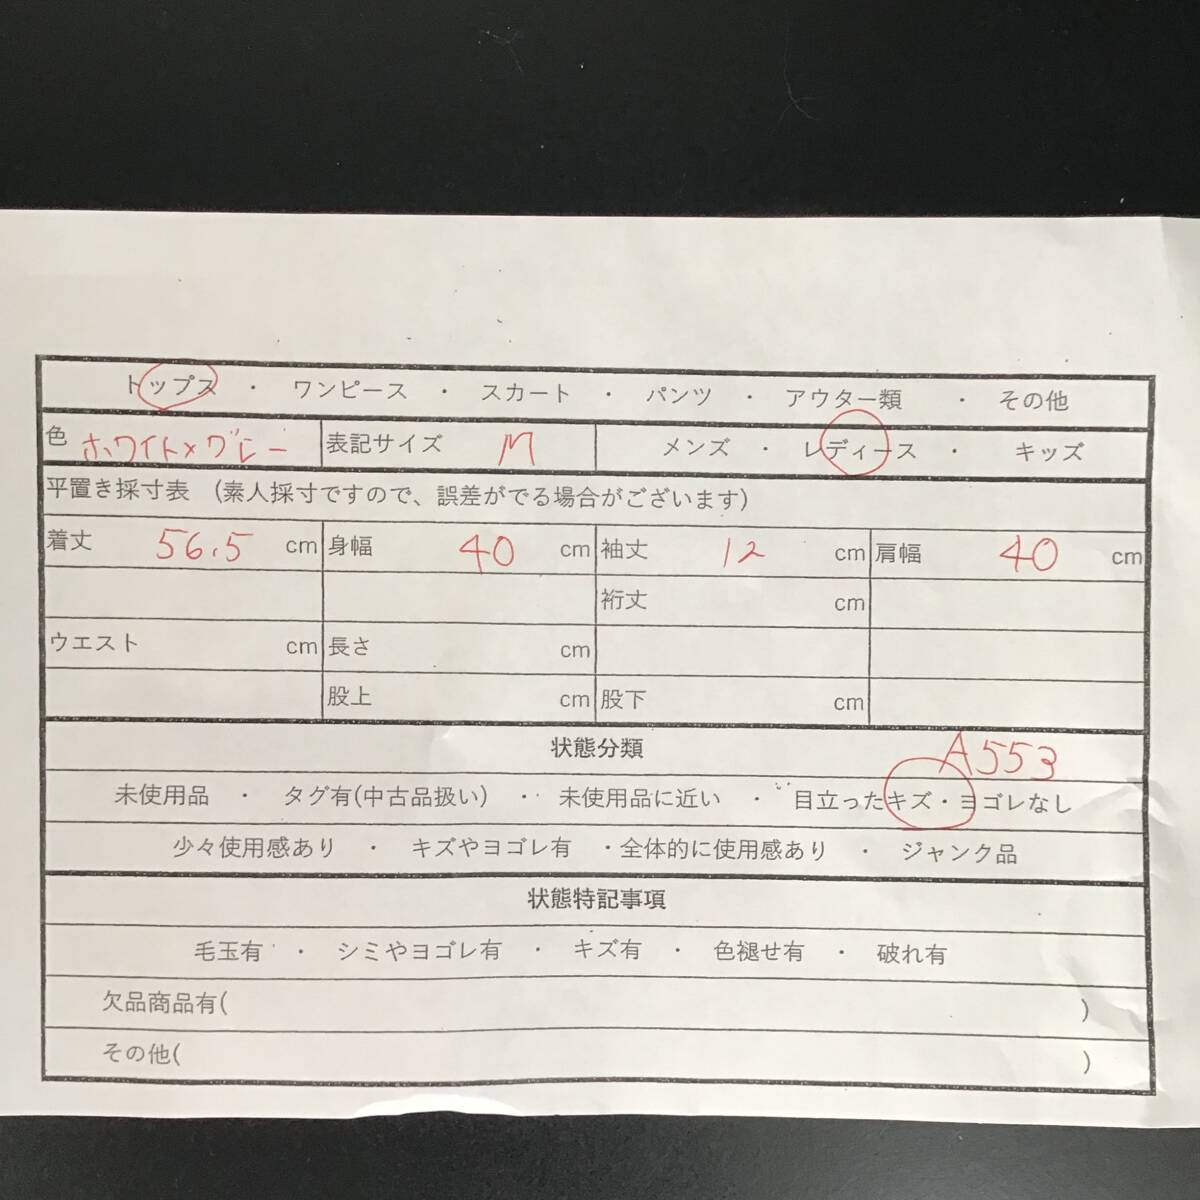 トップス ・ ワンピース ・ スカート ・ パンツ ・ アウター類 ・ その他
色 ホワイト×グレー 表記サイズ M メンズ ・ レディース ・ キッズ
平置き採寸表 (素人採寸ですので、誤差がでる場合がございます)
着丈 56.5 cm 身幅 40 cm 袖丈 12 cm 肩幅 40 cm
裄丈 cm
ウエスト cm 長さ cm
股上 cm 股下 cm
状態分類 A553
未使用品 ・ タグ有(中古品扱い) ・ 未使用品に近い ・ 目立ったキズ・ヨゴレなし
少々使用感あり ・ キズやヨゴレ有 ・全体的に使用感あり ・ ジャンク品
状態特記事項
毛玉有 ・ シミやヨゴレ有 ・ キズ有 ・ 色褪せ有 ・ 破れ有
欠品商品有( )
その他( )